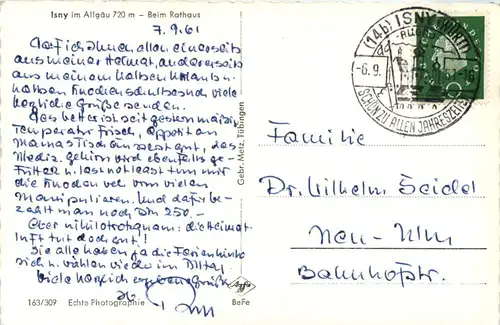 Isny im Allgäu 720 m – Beim Rathaus
7.9.61
Darf ich Ihnen allen einerseits
aus meiner Heimat, andererseits
aus meinem halben Urlaub u.
halben Knochen viele
herzliche Grüße senden.
Das Wetter ist seit gestern mässig,
Temperatur frisch, Appetit an
Mamas Tisch äusserst gut, das
Mediz. Gehirn wird ebenfalls ge-
füttert u. last not least tun mir
die Knoden vel vom vielen
Manipulieren. Und dafür be-
zahlt man noch DM 250.-
Aber nihilotrotzquam: die Heimat-
luft tut doch gut!
Sie alle haben ja die Ferien hinter
sich u. wühlen wieder im Alltag
viele herzlich ergebene Grüße
Ihr
163/309 Echte Photographie
Agfa
BeFe
Gebr. Metz, Tübingen
(14b) ISNY (WÜRTT)
-6.9.
SCHÖN ZU ALLEN JAHRESZEITEN
Familie
Dr. Wilhelm Seidel
Neu-Ulm
Bahnhofstr.